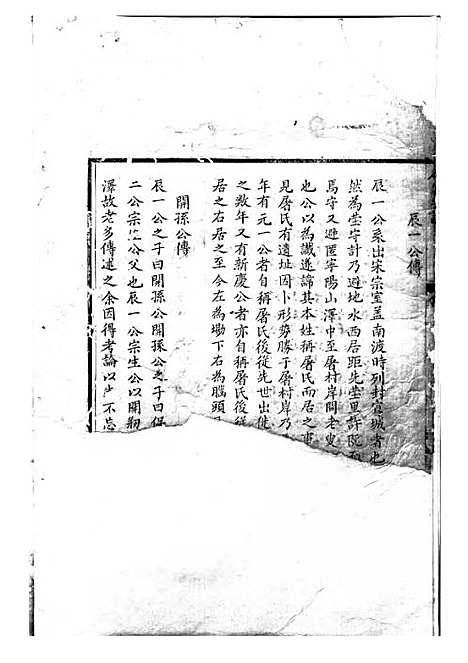 辰一公傳
辰一公系出宋宗室蓋南渡時列封宣城者也
然為塋守計乃避地水西居距先塋里許
馬守又避匿寧陽山澤中至屠村岸問老叟
也公以為讖遂諱其本姓稱屠氏而居之
見屠氏有遺址因卜形勢勝于屠村岸乃
年有元一公者自稱屠氏後從先世出
之数年又有新慶公者亦自稱屠氏後
居之右居之至今左為塲下右為腦頭
開孫公傳
辰一公之子曰開孫公開孫公之子曰保
二公宗 公父也辰一公宗生公以開剏
澤故老多傳述之余因得考論以 不忘